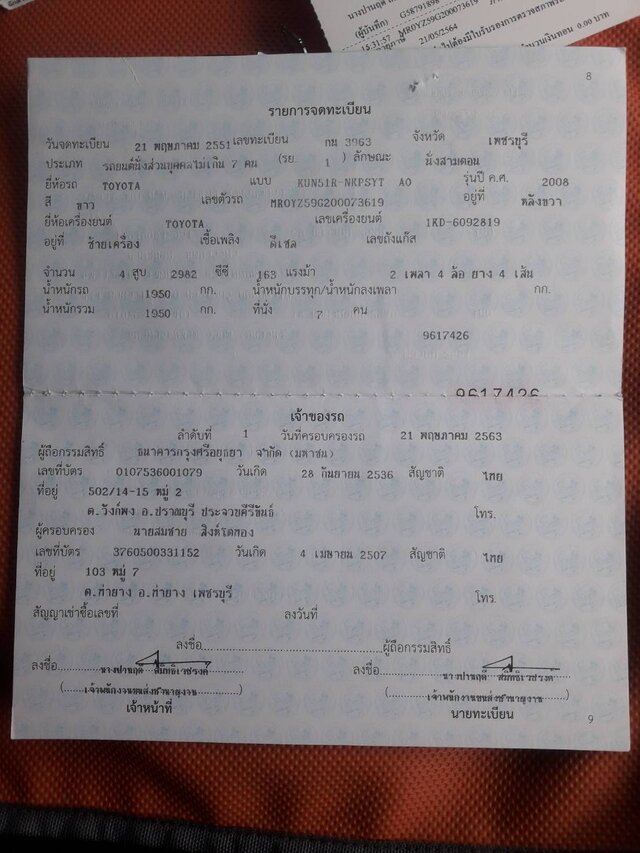 (ผู้บันทึก) G58791898
15:31:57 MR0YZ59G200073619
21/05/2564
0.00 บาท
8
รายการจดทะเบียน
วันจดทะเบียน 21 พฤษภาคม 2551 เลขทะเบียน กน 3963 จังหวัด เพชรบุรี
ประเภท รถยนต์นั่งส่วนบุคคลไม่เกิน 7 คน (รย. 1 ) ลักษณะ นั่งสามตอน
ยี่ห้อรถ TOYOTA แบบ KUN51R-NKPSYT A0 รุ่นปี ค.ศ. 2008
สี ขาว เลขตัวรถ MR0YZ59G200073619 อยู่ที่ หลังขวา
ยี่ห้อเครื่องยนต์ TOYOTA เลขเครื่องยนต์ 1KD-6092819
อยู่ที่ ซ้ายเครื่อง เชื้อเพลิง ดีเซล เลขถังแก๊ส
จำนวน 4 สูบ 2982 ซีซี 163 แรงม้า 2 เพลา 4 ล้อ ยาง 4 เส้น
น้ำหนักรถ 1950 กก. น้ำหนักบรรทุก/น้ำหนักลงเพลา กก.
น้ำหนักรวม 1950 กก. ที่นั่ง 7 คน
9617426
9617426
เจ้าของรถ
ลำดับที่ 1 วันที่ครอบครองรถ 21 พฤษภาคม 2563
ผู้ถือกรรมสิทธิ์ ธนาคารกรุงศรีอยุธยา จำกัด (มหาชน)
เลขที่บัตร 0107536001079 วันเกิด 28 กันยายน 2536 สัญชาติ ไทย
ที่อยู่ 502/14-15 หมู่ 2
ต.วังก์พง อ.ปราณบุรี ประจวบคีรีขันธ์ โทร.
ผู้ครอบครอง นายสมชาย สิงห์โตทอง
เลขที่บัตร 3760500331152 วันเกิด 4 เมษายน 2507 สัญชาติ ไทย
ที่อยู่ 103 หมู่ 7
ต.ท่ายาง อ.ท่ายาง เพชรบุรี โทร.
สัญญาเช่าซื้อเลขที่ ลงวันที่
ลงชื่อ ผู้ถือกรรมสิทธิ์
ลงชื่อ ลงชื่อ
(เจ้าพนักงานขนส่งชำนาญงาน) (เจ้าพนักงานขนส่งชำนาญงาน)
เจ้าหน้าที่ นายทะเบียน
9